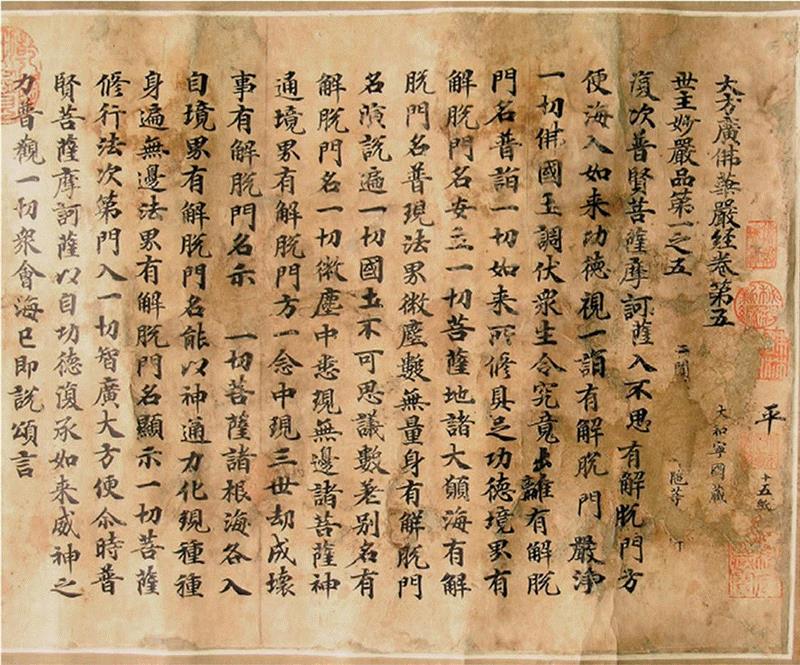 大方廣佛華嚴經卷第五
世主妙嚴品第一之五
復次普賢菩薩摩訶薩入不思有解脫門方
便海入如来功德視一詣有解脫門 嚴淨
一切佛國玉調伏衆生令究竟出離有解脫
門名普詣一切如来所修具足功德境界有
解脫門名安立一切菩薩地諸大願海有解
脫門名普現法界微塵數無量身有解脫門
名演說遍一切國土不可思議數差別名有
解脫門名一切微塵中悉現無邊諸菩薩神
通境界有解脫門方一念中現三世劫成壞
事有解脫門名示 一切菩薩諸根海各入
自境界有解脫門名能以神通力化現種種
身遍無邊法界有解脫門名顯示一切菩薩
修行法次第門入一切智廣大方便尒時普
賢菩薩摩訶薩以自功德復承如来威神之
力普觀一切衆會海已即說頌言
平
十五紙
大和寧國藏